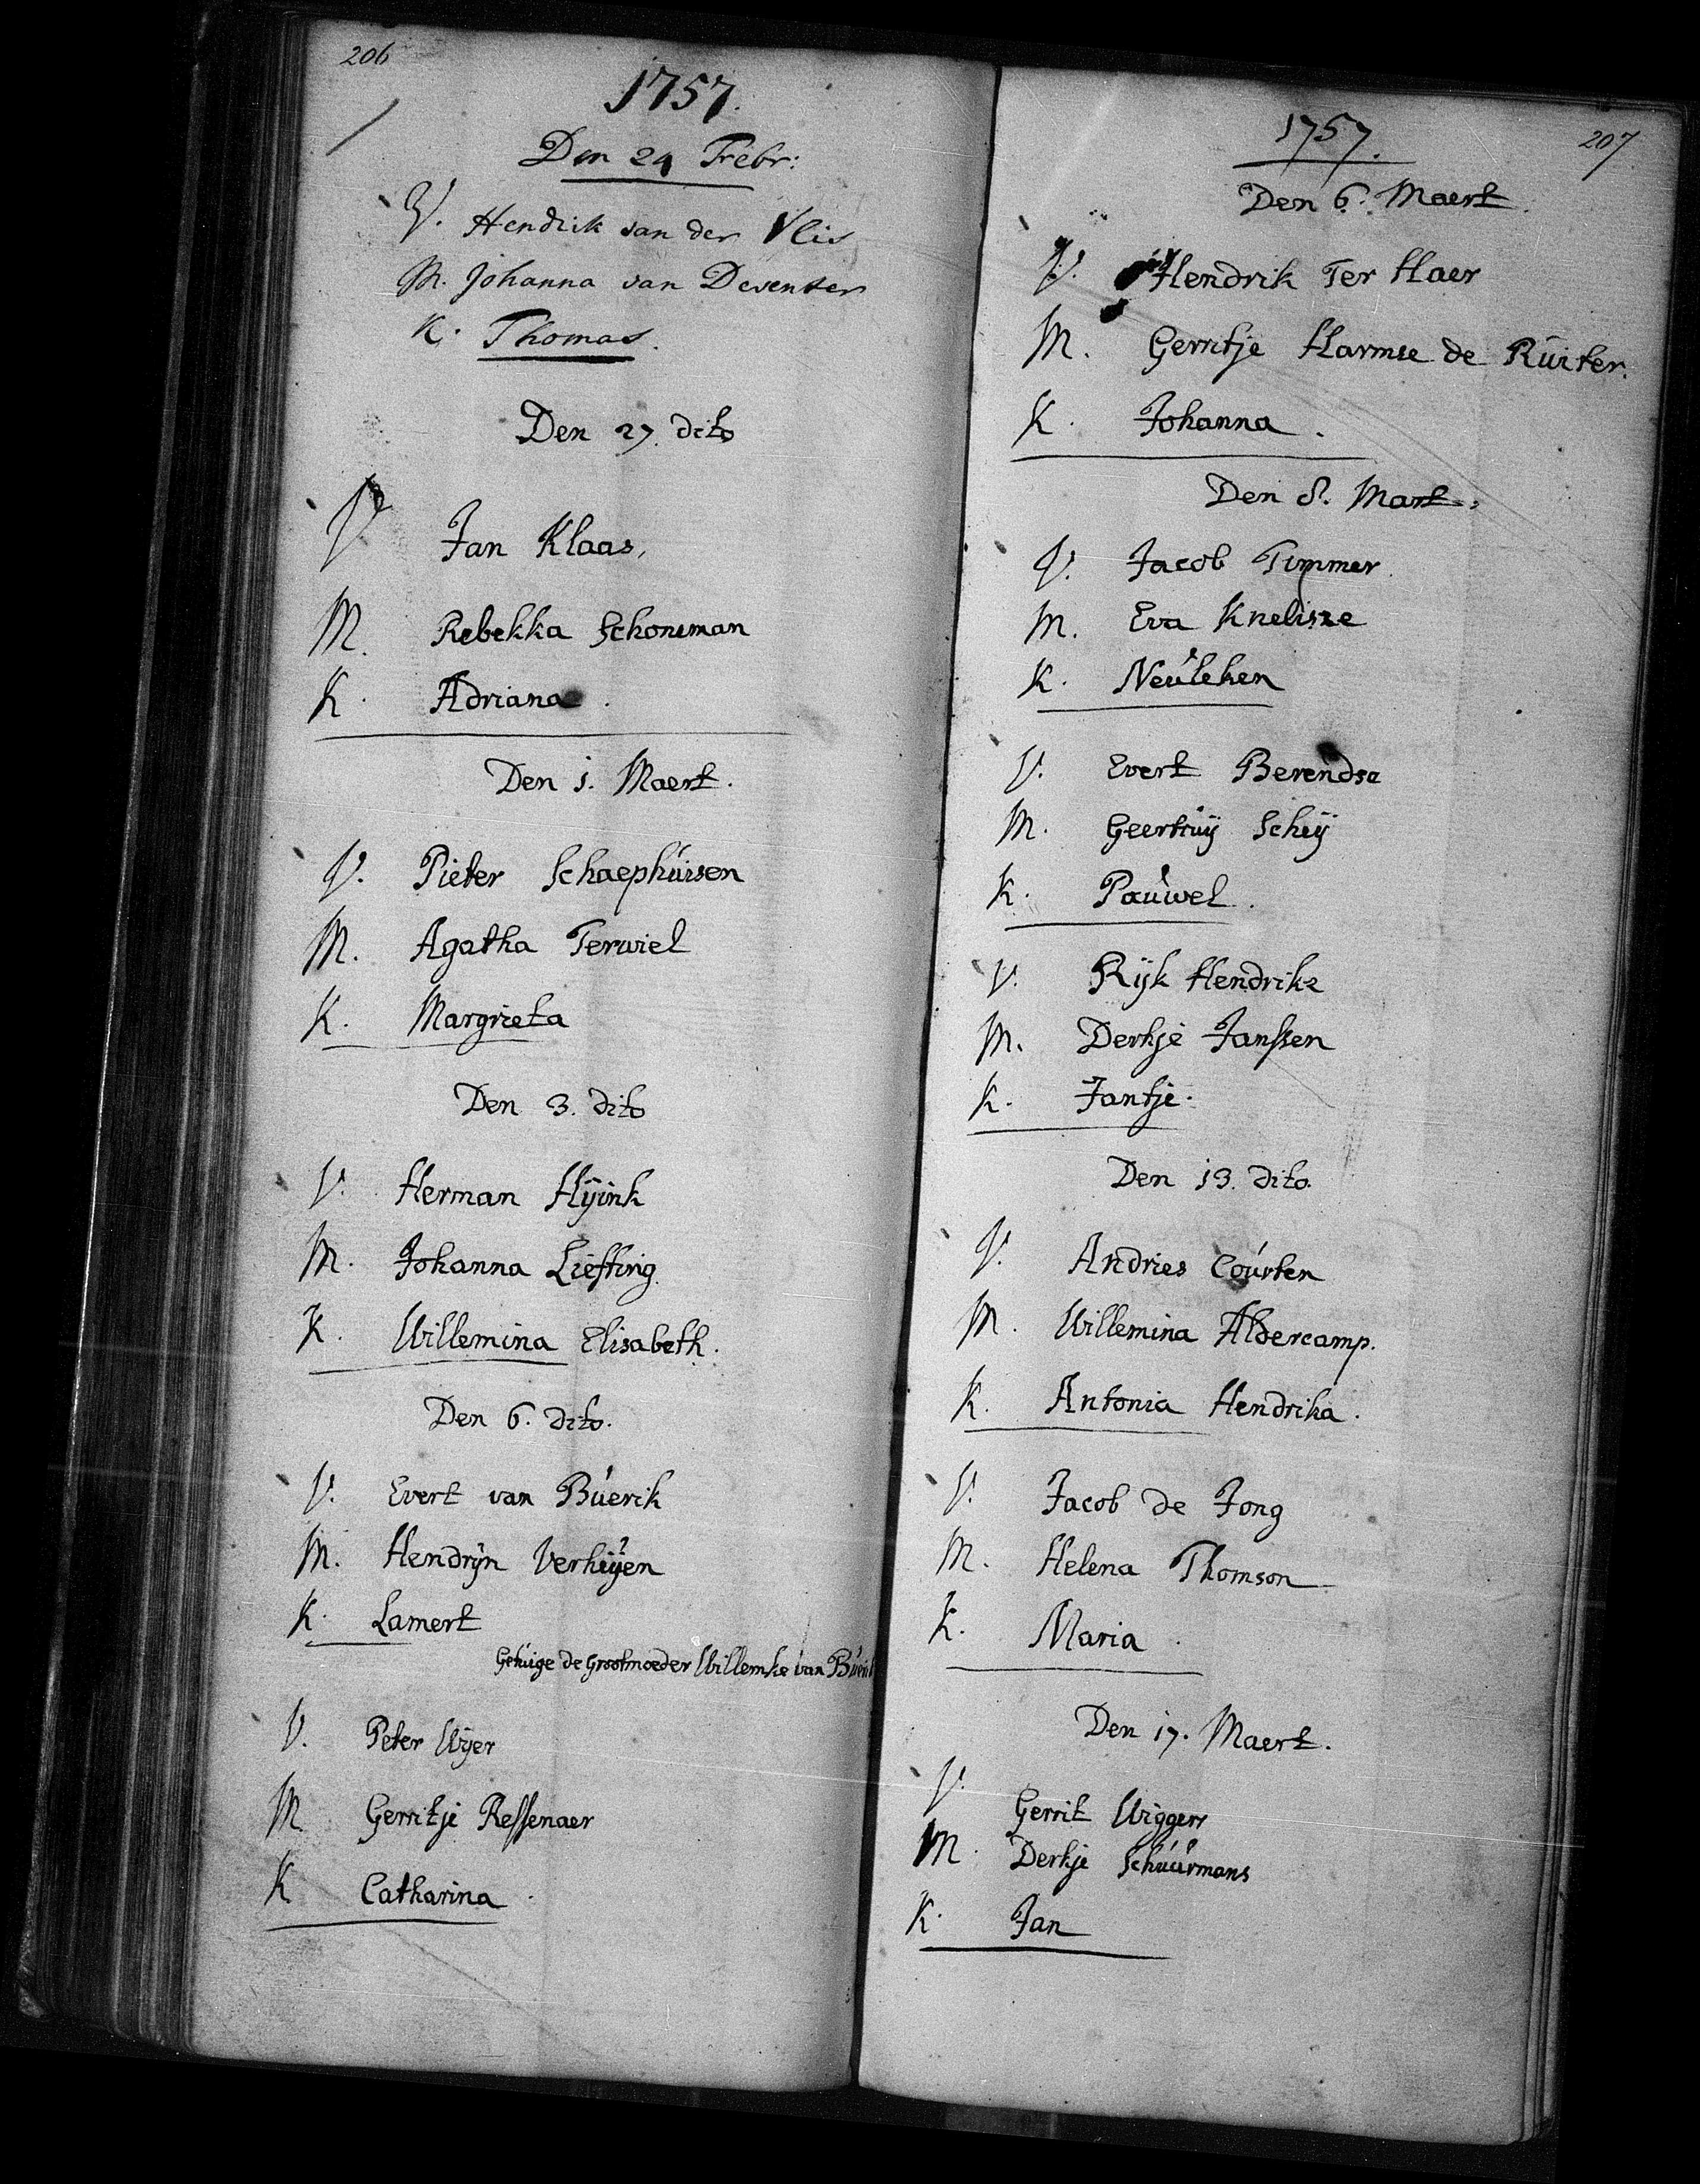 206
1757.
Den 24 Febr:
V. Hendrik van der Vlis
M. Johanna van Deventer
K. Thomas.
Den 27. dito
V Jan Klaas,
M. Rebekka Schoneman
K. Adriana.
Den 1. Maert.
V. Pieter Schaephuisen
M. Agatha Terwiel
K. Margrieta
Den 3. dito
V. Herman Hÿink
M. Johanna Lieffting
K. Willemina Elisabeth.
Den 6. dito.
V. Evert van Buerik
M. Hendrÿn Verheÿen
K. Lamert
Getuige de Grootmoeder Willemke van
V. Peter Wÿer
M Gerritje Ressenaer
K Catharina.
207
1757.
Den 6. Maert.
V. Hendrik Ter Haer
M. Gerritje Harmse de Ruiter.
K. Johanna.
Den 8. Mart.
V. Jacob Timmer
M. Eva Knelisze
K. Neuleken
V. Evert Berendse
M. Geertruÿ Scheÿ
K. Pauwel.
V. Rÿk Hendriks
M. Derkje Janssen
K. Jantje.
Den 13. dito.
V. Andries Courten
M. Willemina Aldercamp.
K. Antonia Hendrika.
V. Jacob de Jong
M. Helena Thomson
K. Maria.
Den 17. Maert.
V. Gerrit Wiggers
M. Derkje Schuurmans
K. Jan